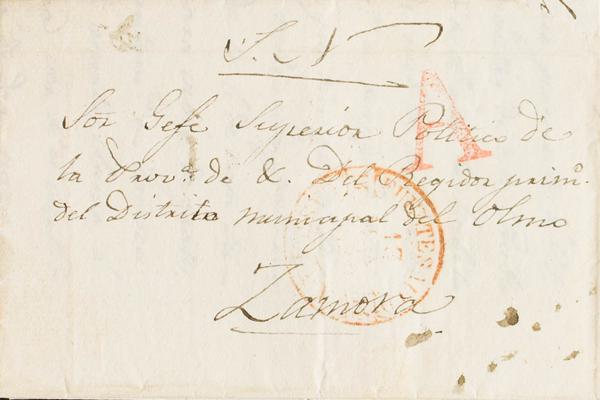 S. N
A
Sor Gefe Superior Politico de
la Prov.a de &. Del Regidor prim.o
del Distrito municipal del Olmo
Zamora
17